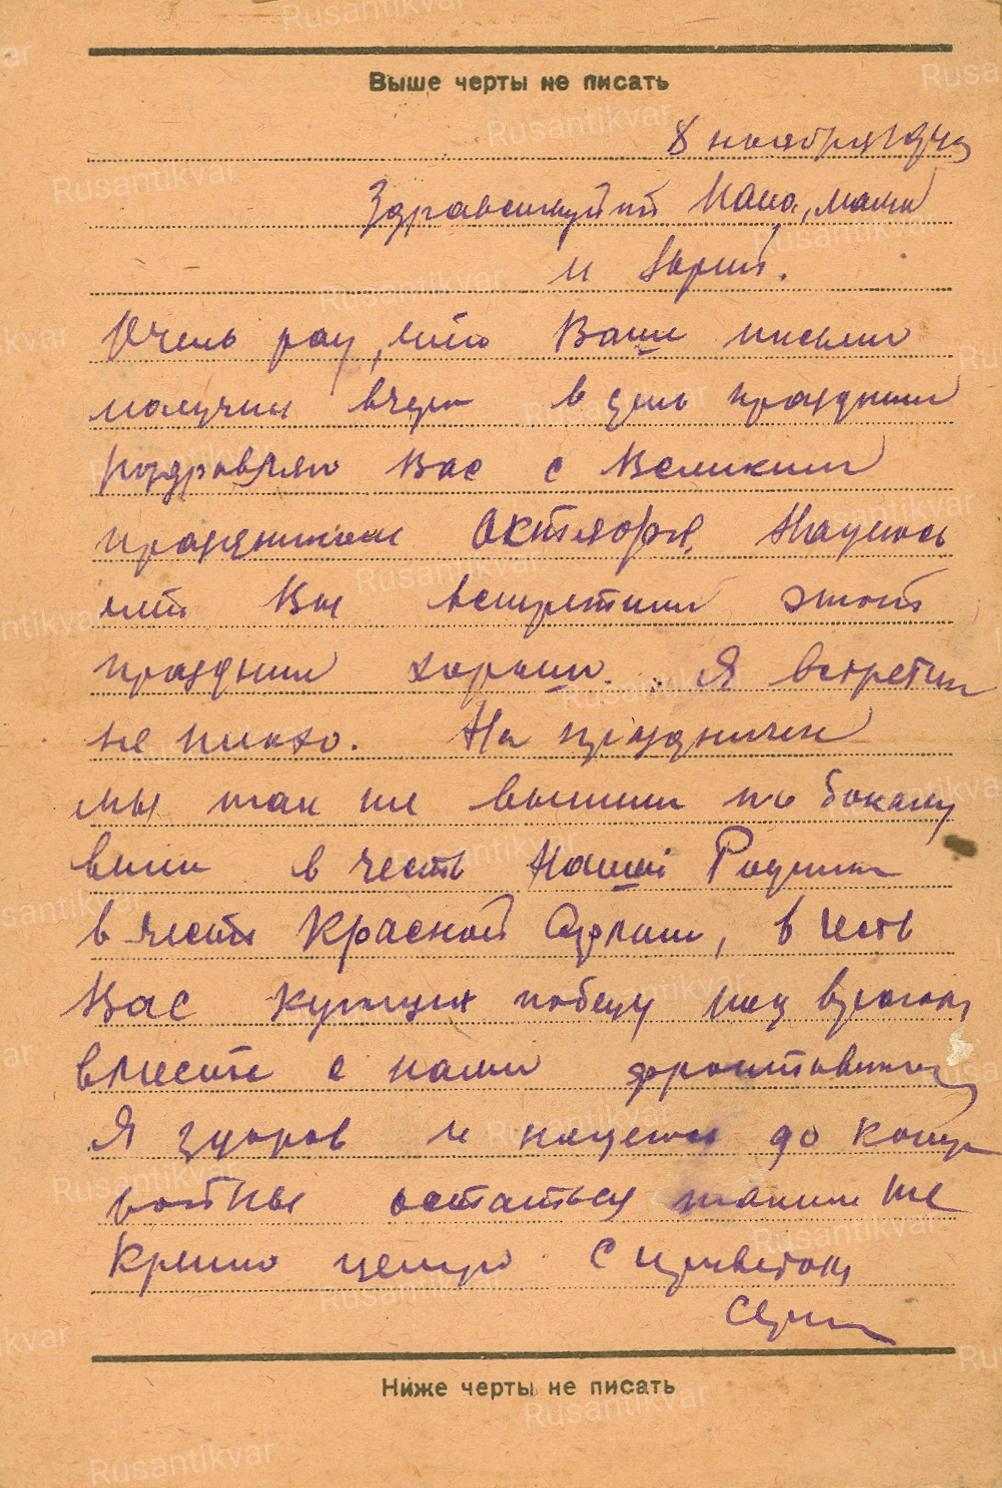 Выше черты не писать
8 ноября 1943
Здравствуйте Папа, мама
и
Очень рад, что Ваши письма
получил вчера в день праздника
Поздравляю Вас с Великим
праздником Октября. Надеюсь
что Вы встретили этот
праздник хорошо. Я встретил
не плохо. На праздничек
мы так же выпили по бокалу
вина в честь Нашей Родины
в честь Красной Армии, в честь
Вас кующих победу над врагом
вместе с нами фронтовиками
Я здоров и надеюсь до конца
войны остаться таким же
Крепко целую. С приветом
Ниже черты не писать
Rusantikvar